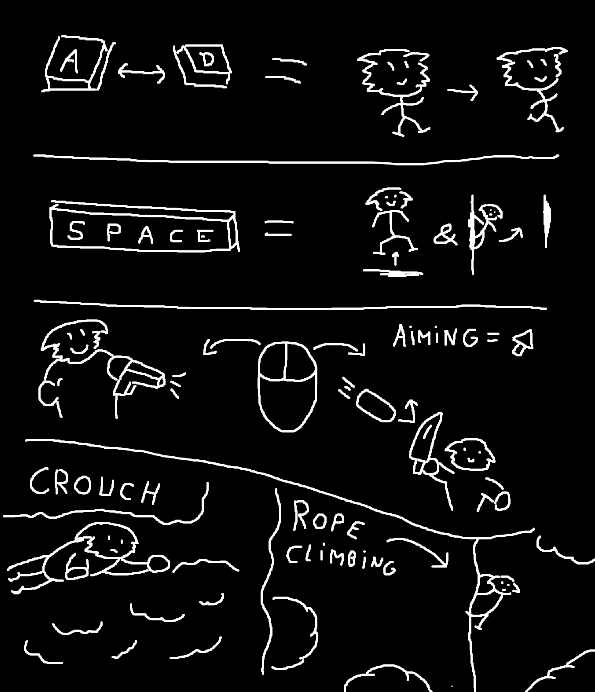 A D =
SPACE = &
AIMING =
CROUCH
ROPE
CLIMBING